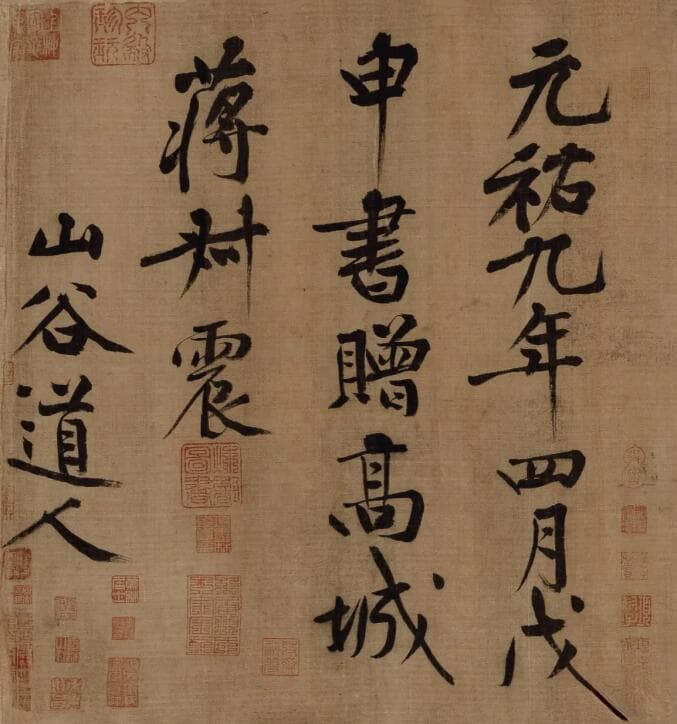 元祐九年四月戊
申書贈高城
蒋叔震
山谷道人